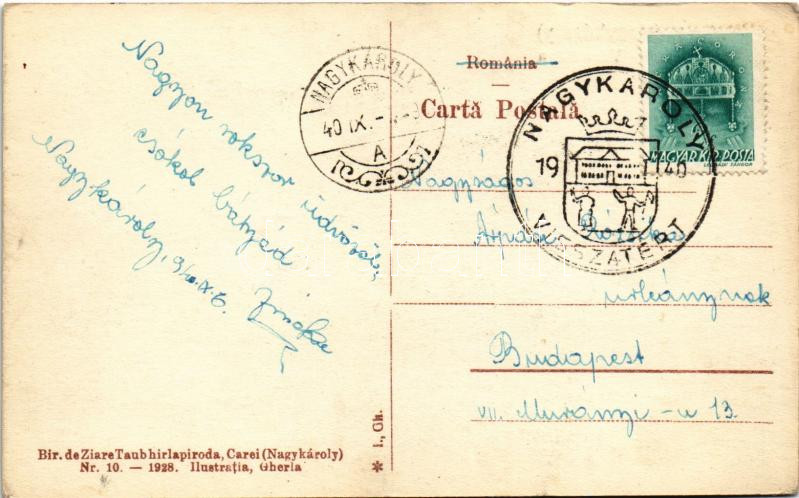 România
Cartă Poștală
NAGYKÁROLY
40 IX.
A
NAGYKÁROLY
19 40
VISSZATÉRT
MAGYAR KIR. POSTA
Nagyon sokszor üdvözöl,
csókol bátyád
Nagykároly,
Nagyságos
Árpád
urleánynak
Budapest
VII. Murányi-u 13.
Bir. de Ziare Taub hirlapiroda, Carei (Nagykároly)
Nr. 10. — 1928. Ilustrația, Gherla
* I., Gh.